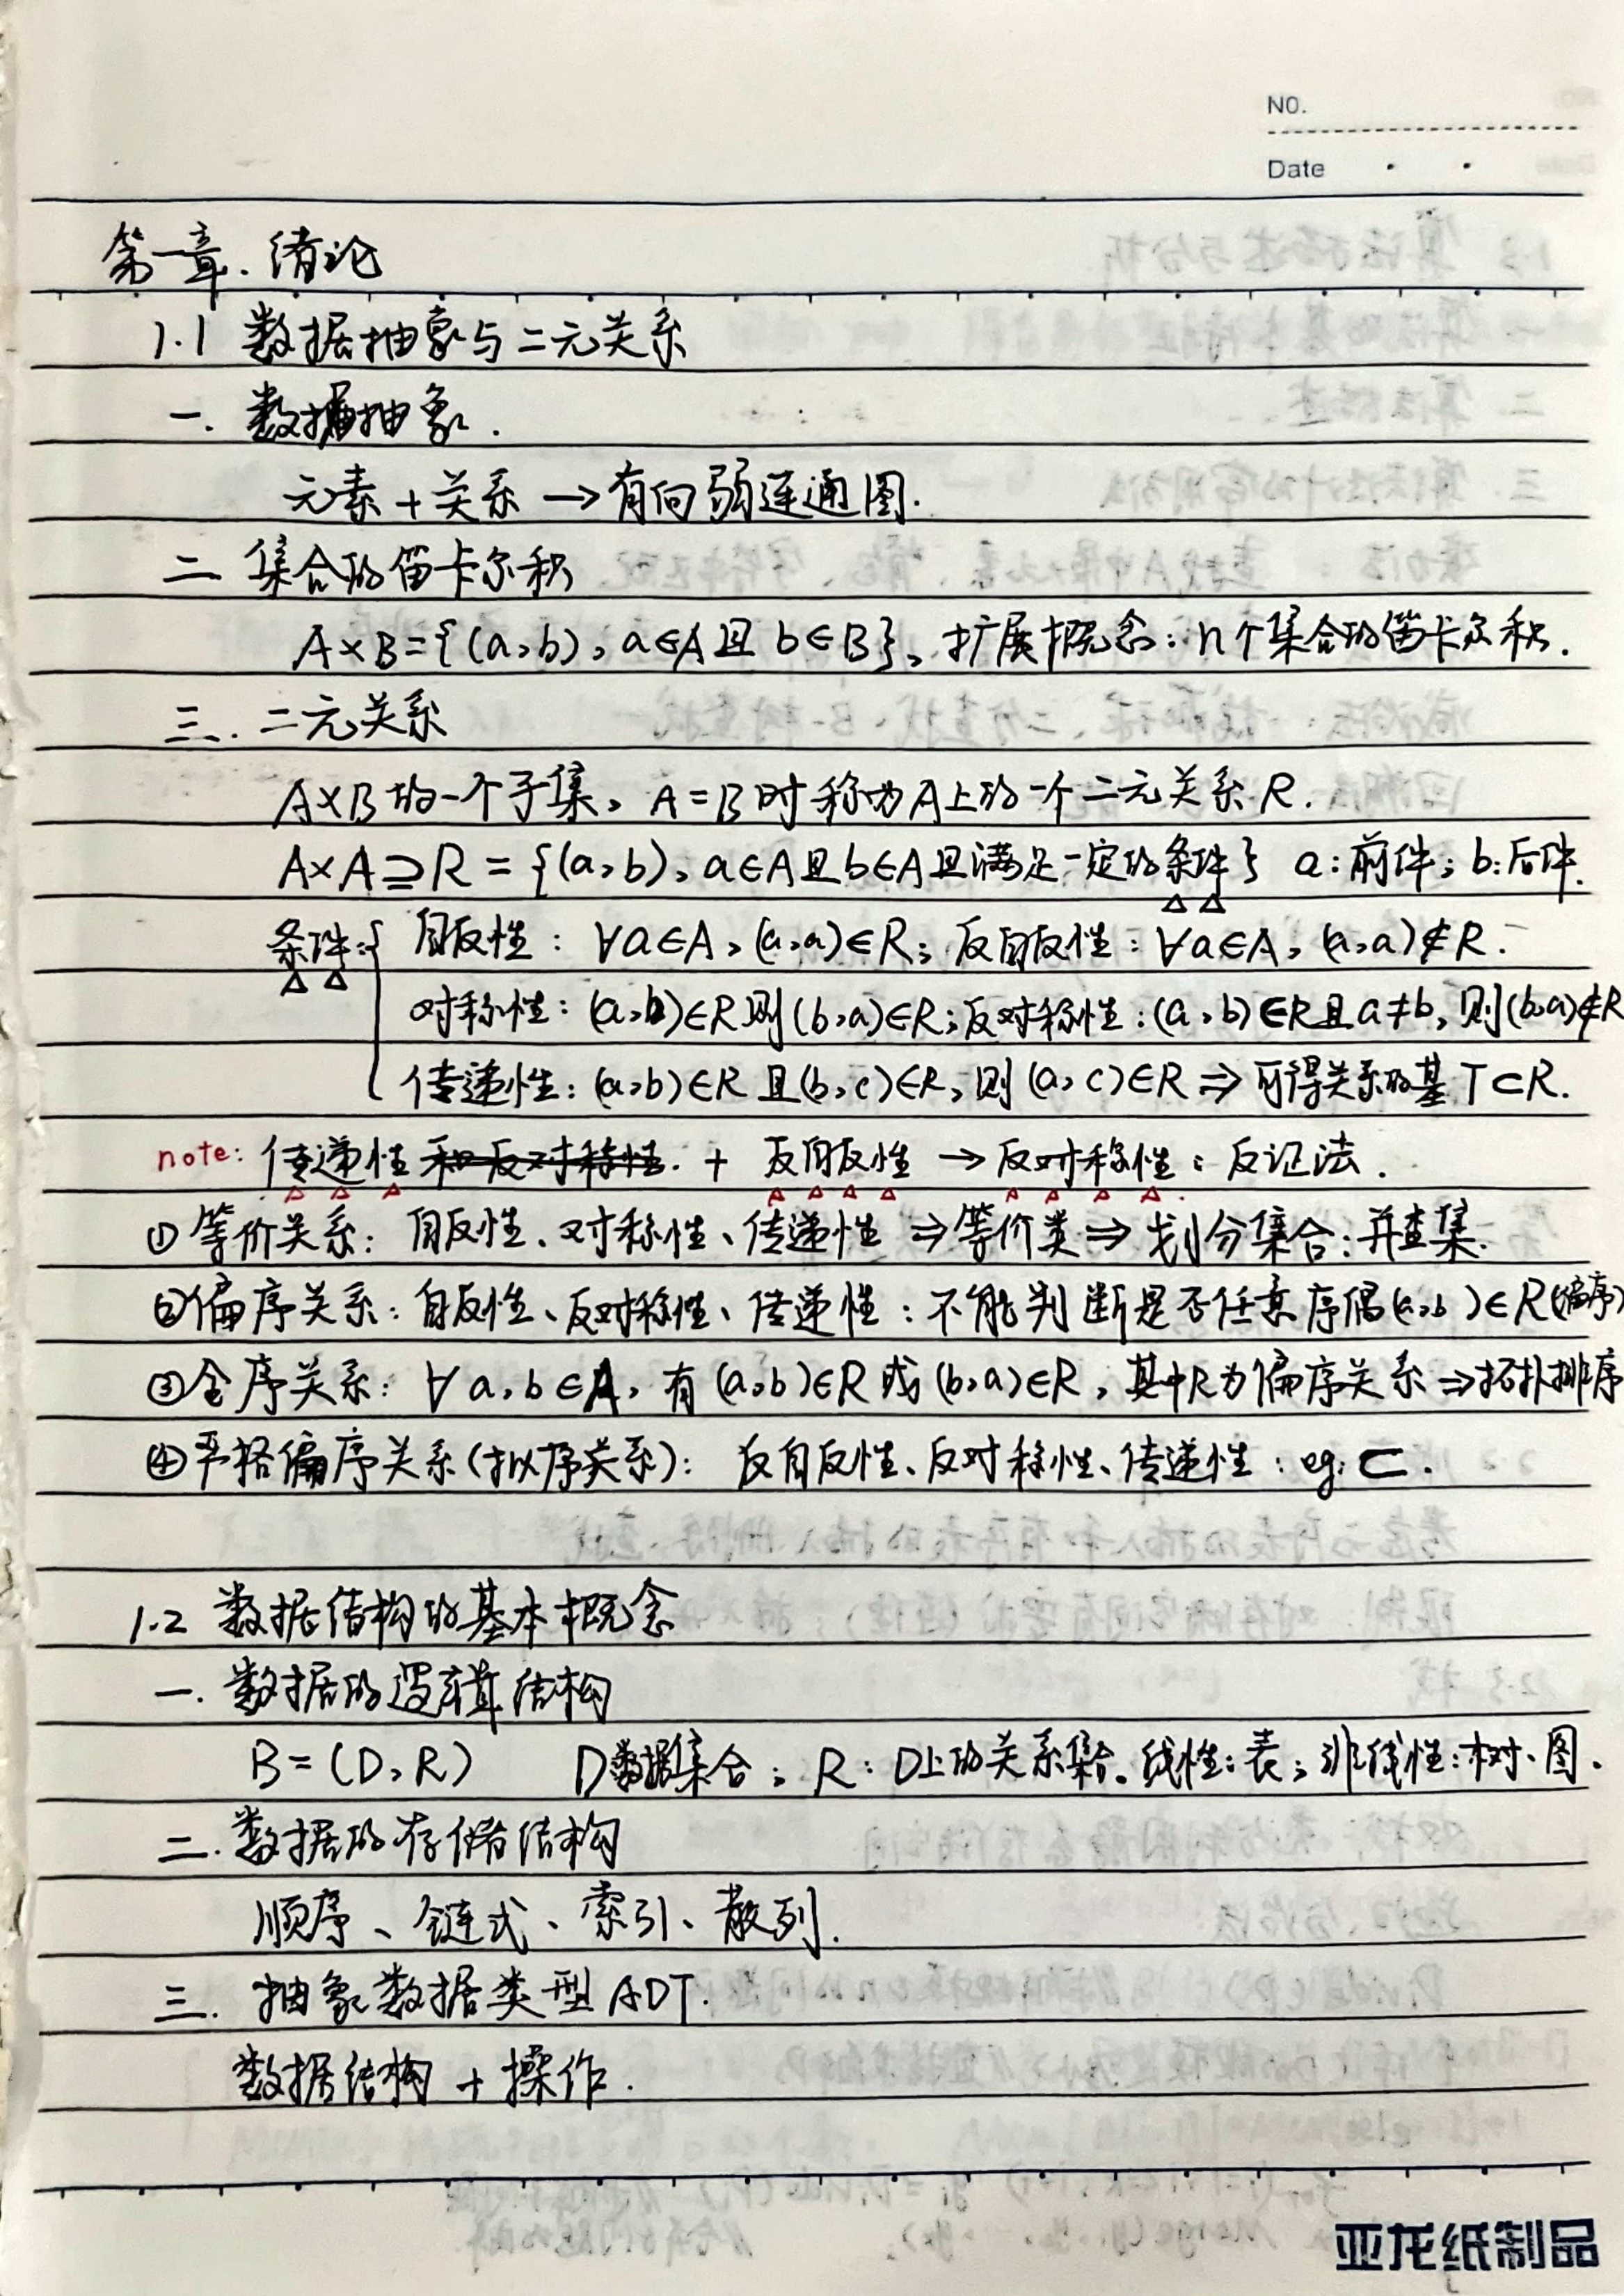 NO.
Date
第一章. 绪论
1.1 数据抽象与二元关系
一. 数据抽象.
元素 + 关系 → 有向弱连通图.
二 集合的笛卡尔积
A×B={(a,b), a∈A且 b∈B}, 扩展概念: n个集合的笛卡尔积.
三. 二元关系
A×B的一个子集, A=B时称为A上的一个二元关系 R.
A×A⊇R = {(a,b), a∈A且b∈A且满足一定的条件} a:前件; b:后件.
条件:{ 自反性: ∀a∈A, (a,a)∈R; 反自反性: ∀a∈A, (a,a)∉R.
对称性: (a,b)∈R则(b,a)∈R; 反对称性: (a,b)∈R且a≠b, 则(b,a)∉R
传递性: (a,b)∈R 且(b,c)∈R, 则 (a,c)∈R ⇒ 可得关系的基 T⊂R.
note: 传递性 和反对称性. + 反自反性 → 反对称性: 反证法.
① 等价关系: 自反性、对称性、传递性 ⇒ 等价类 ⇒ 划分集合: 并查集.
②偏序关系: 自反性、反对称性、传递性: 不能判断是否任意序偶(a,b)∈R(偏序)
③全序关系: ∀a,b∈A, 有(a,b)∈R 或(b,a)∈R, 其中R为偏序关系 ⇒拓扑排序
④严格偏序关系(拟序关系): 反自反性、反对称性、传递性: eg: ⊂.
1.2 数据结构的基本概念
一. 数据的逻辑结构
B=(D,R) D数据集合; R: D上的关系集合. 线性:表; 非线性:树、图.
二. 数据的存储结构
顺序、链式、索引、散列.
三. 抽象数据类型 ADT.
数据结构 + 操作.
亚龙纸制品